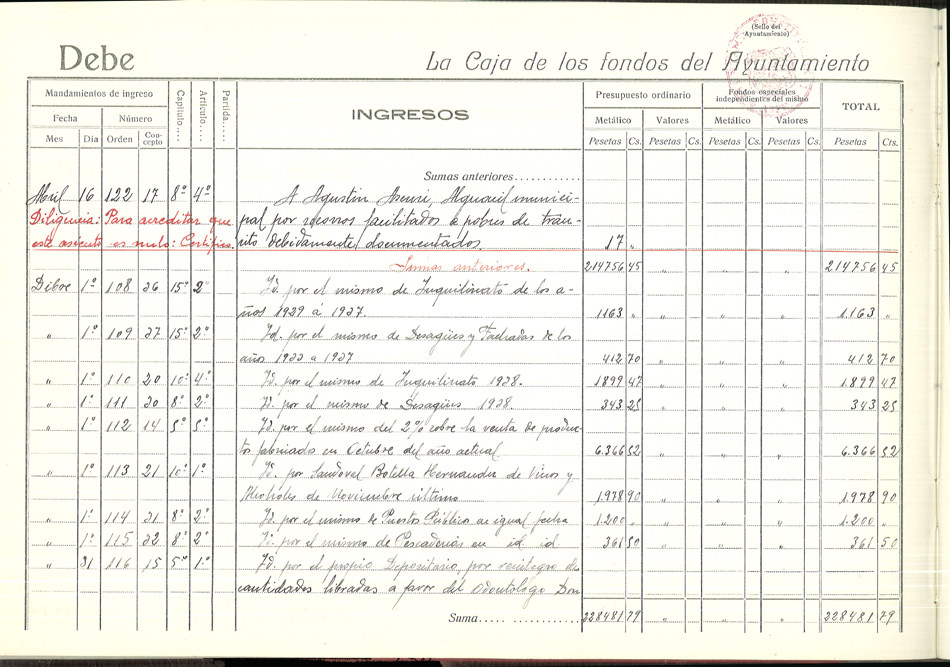 (Sello del Ayuntamiento)
Debe
La Caja de los fondos del Ayuntamiento
Mandamientos de ingreso
Capítulo.... Artículo.... Partida....
INGRESOS
Presupuesto ordinario
Fondos especiales independientes del mismo
TOTAL
Fecha Número
Metálico Valores Metálico Valores
Mes Día Orden Concepto
Pesetas Cs. Pesetas Cs. Pesetas Cs. Pesetas Cs. Pesetas Cts.
Sumas anteriores............
Abril 16 122 17 8º 4º A Agustín Alguacil munici-
Diligencia: Para acreditar que pal por socorros facilitados a pobres de tran-
este asiento es nulo: Certifico. sito debidamente documentados. 17 „
Sumas anteriores. 214756 45 „ „ „ 214756 45
Dibre 1º 108 26 15º 2º Id. por el mismo de Inquilinato de los a-
ños 1929 á 1937. 1163 „ „ „ „ 1.163 „
„ 1º 109 27 15º 2º Id. por el mismo de Desagües y Fachadas de los
años 1933 a 1937 412 70 „ „ „ 412 70
„ 1º 110 20 10º 4º Id. por el mismo de Inquilinato 1938. 1899 47 „ „ „ 1.899 47
„ 1º 111 30 8º 2º Id. por el mismo de Desagües 1938. 343 25 „ „ „ 343 25
„ 1º 112 14 5º 5º Id. por el mismo del 2% sobre la venta de produc-
tos fabricados en Octubre del año actual 6.366 52 „ „ „ 6.366 52
„ 1º 113 21 10º 1º Id. por Sandoval Botella Hernandez de Vinos y
Alcoholes de Noviembre último 1978 90 „ „ „ 1.978 90
„ 1º 114 31 8º 2º Id. por el mismo de Puestos Público de igual fecha 1.200 „ „ „ „ 1.200 „
„ 1º 115 32 8º 2º Id. por el mismo de Pescaderias en id. id 361 50 „ „ „ 361 50
„ 31 116 15 5º 1º Id. por el propio Depositario, por reintegro de
cantidades libradas a favor del Odontólogo Don
Suma..... ............ 228481 79 „ „ „ 228481 79